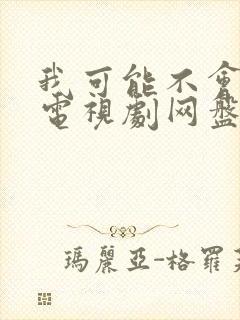 我可能不會
電視劇网盤
瑪麗亞-格羅